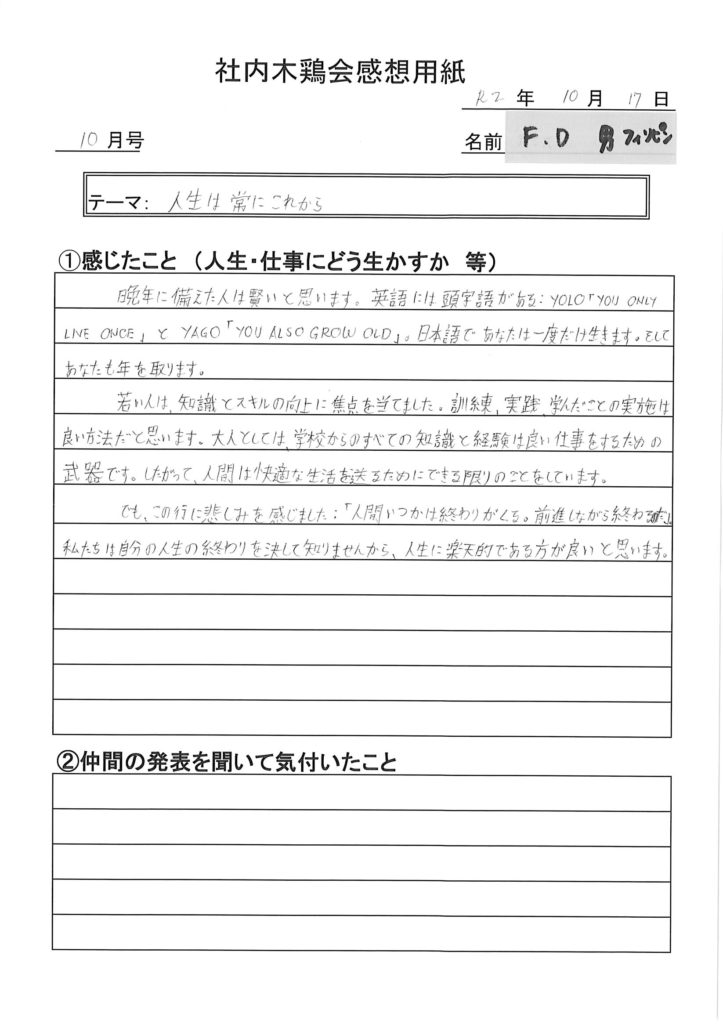 社内木鶏会感想用紙
R2 年 10 月 17 日
10 月号
名前 F.D 男 フィリピン
テーマ: 人生は常にこれから
①感じたこと (人生・仕事にどう生かすか 等)
晩年に備えた人は賢いと思います。英語には頭字語がある: YOLO「YOU ONLY
LIVE ONCE」と YAGO「YOU ALSO GROW OLD」。日本語であなたは一度だけ生きます。そして
あなたも年を取ります。
若い人は、知識とスキルの向上に焦点を当てました。訓練、実践、学んだことの実施は
良い方法だと思います。大人としては、学校からのすべての知識と経験は良い仕事をするための
武器です。したがって、人間は快適な生活を送るためにできる限りのことをしています。
でも、この行に悲しみを感じました:「人間いつかは終わりがくる。前進しながら終わる
私たちは自分の人生の終わりを決して知りませんから、人生に楽天的である方が良いと思います。
②仲間の発表を聞いて気付いたこと